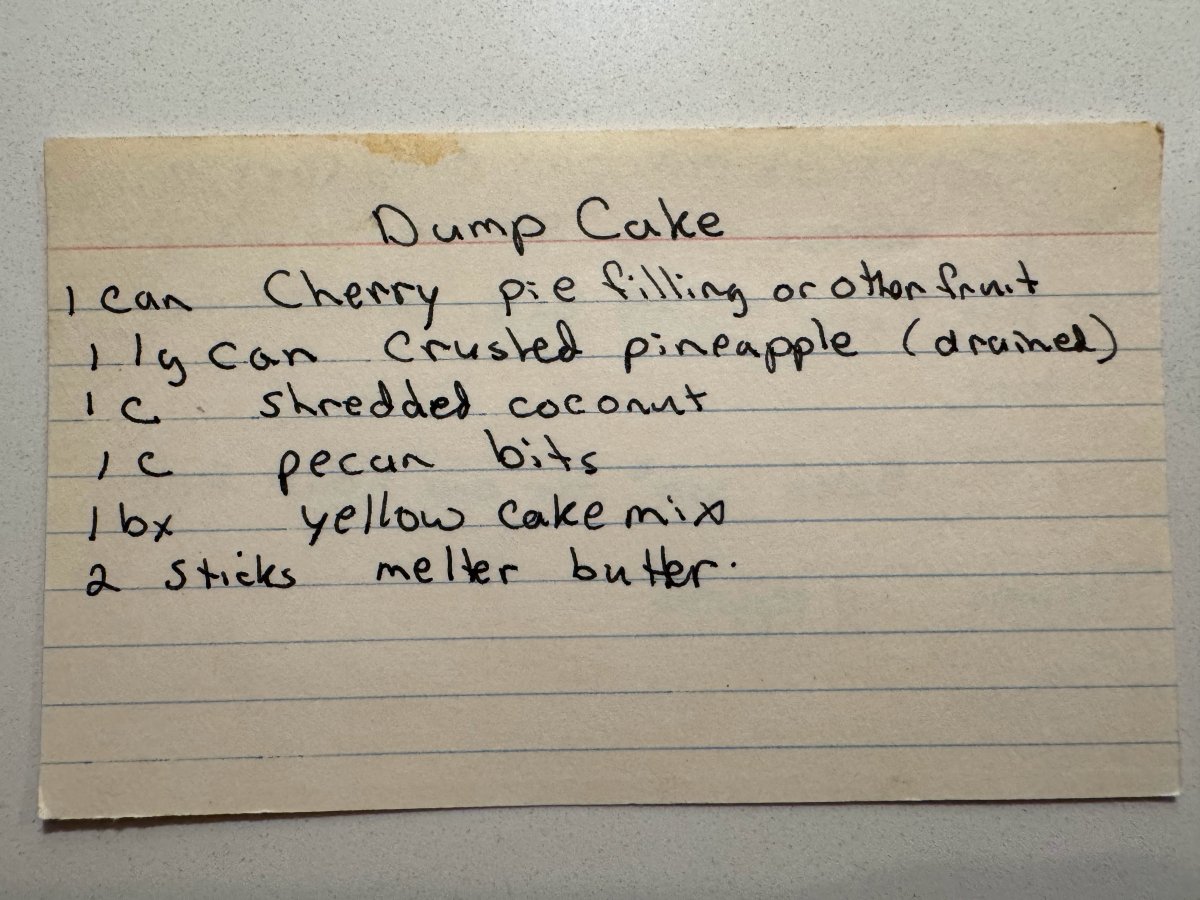 Dump Cake
1 can Cherry pie filling or other fruit
1 lg can crushed pineapple (drained)
1 c shredded coconut
1 c pecan bits
1 bx yellow cake mix
2 sticks melter butter.